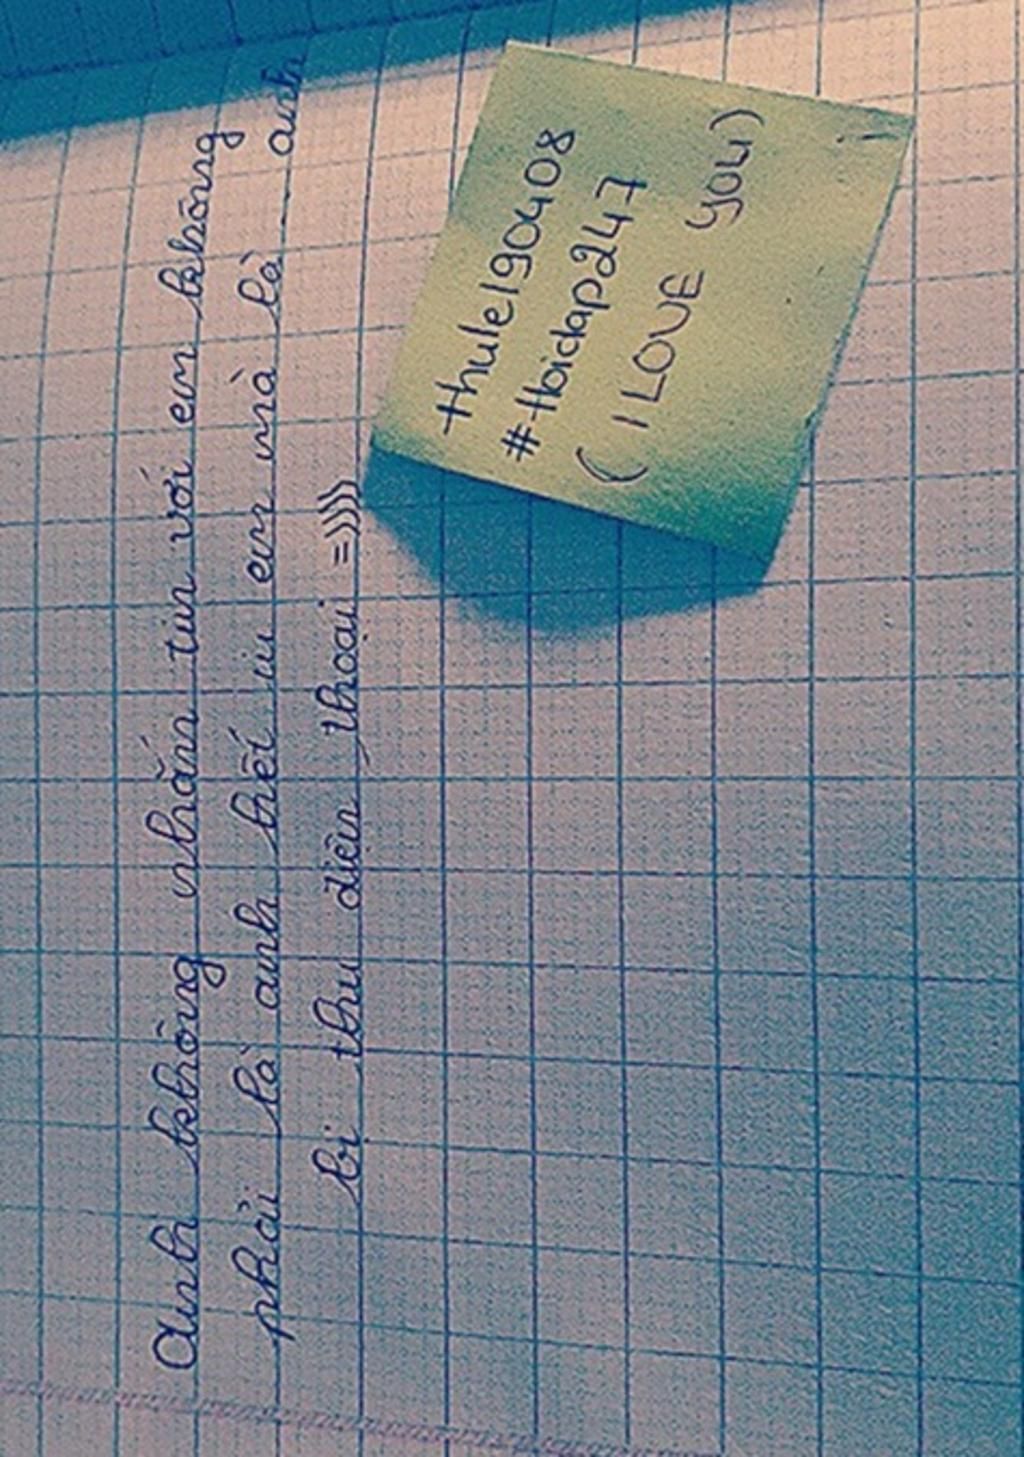 Anh không nhắn tin với em không
phải là anh hết iu em mà là anh
bị thu điện thoại =)))))
thule190408
#tbidap247
( I LOVE you)